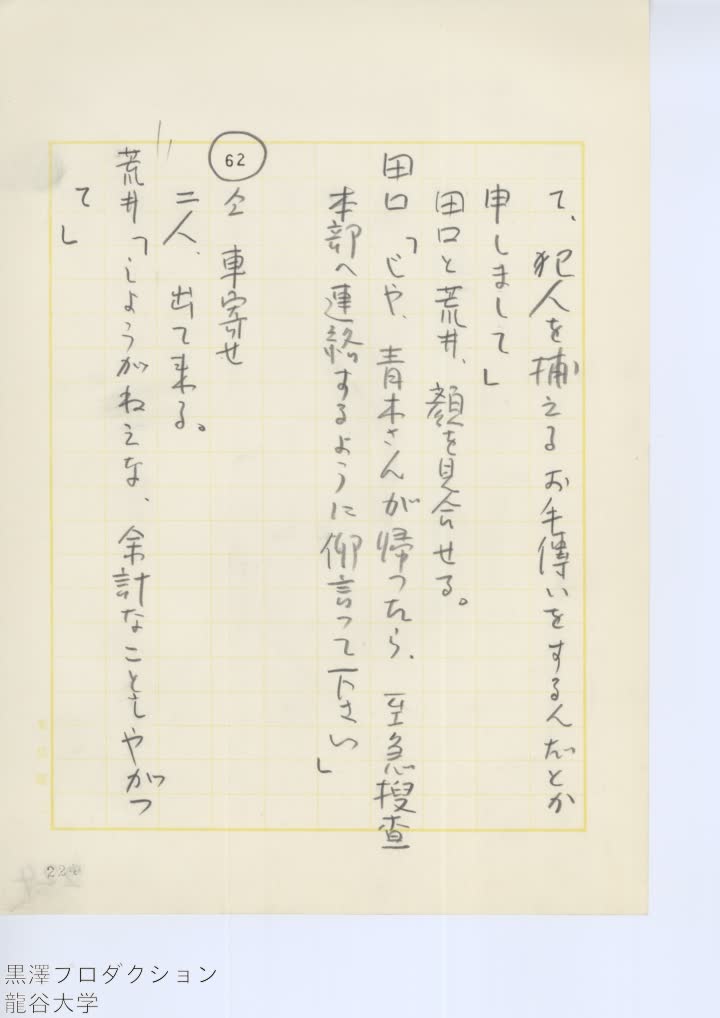 て、犯人を捕える お手傳いをするんだとか
申しまして」
田口と荒井、顔を見合せる。
田口「じや、青木さんが帰つたら、至急捜査
本部へ連絡するように仰言って下さい」
62
仝 車寄せ
二人、出て来る。
荒井「しようがねえな、余計なことしやがつ
て」
224
黒澤プロダクション
龍谷大学